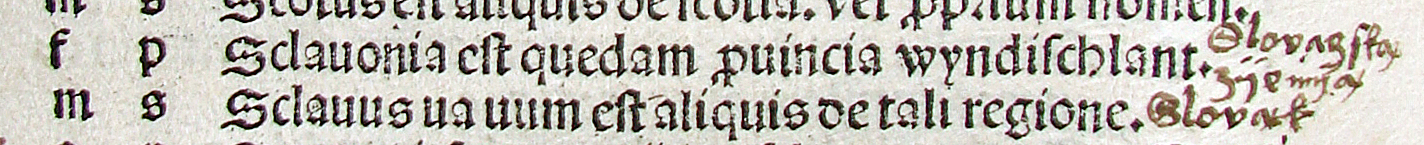 m s Scotus est aliquis de scotia. vel ꝓpꝛium nomen.
f p Sclauonia eſt quedam ꝓuincia wyndiſchlant. Slovagſka
zijemija
m s Sclauus ua uum eſt aliquis de tali regione. Slovak